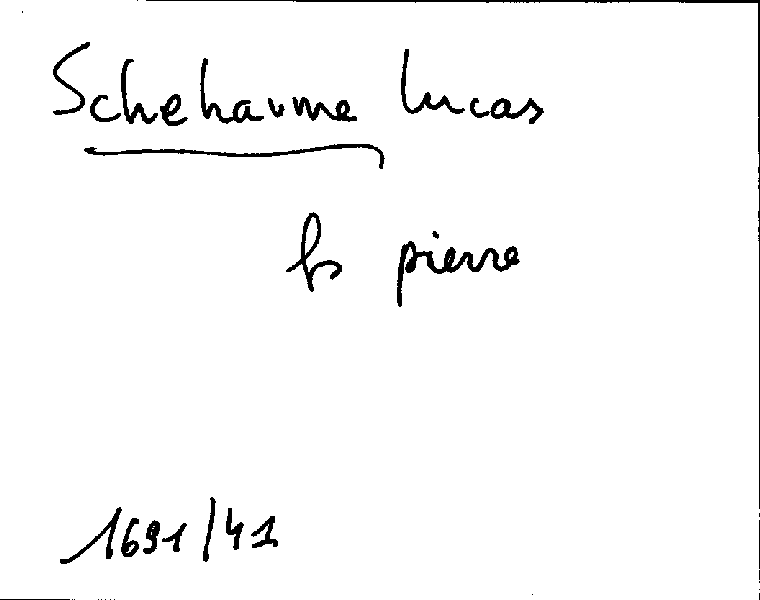 Schehaume lucas
fs pierre
1691/41